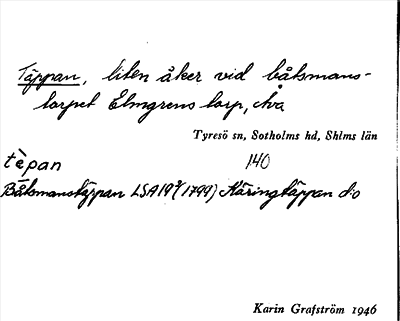 Täppan, liten åker vid båtsmans-
torpet Elmgrens torp, dva
Tyresö sn, Sotholms hd, Shlms län
tèpan 140
Båtsmanstäppan LSA 19 (1799) Käringtäppan d:o
Karin Grafström 1946